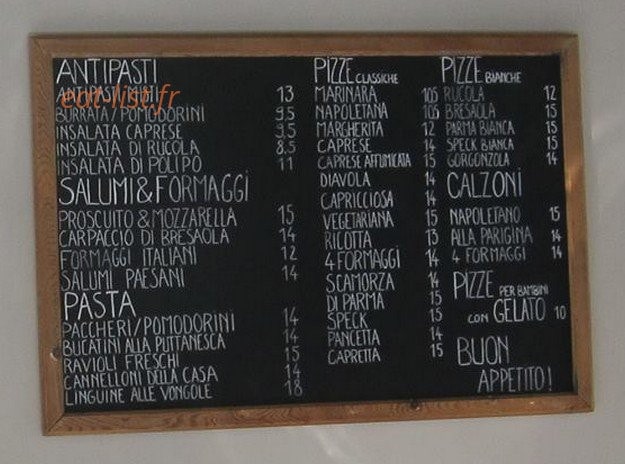 ANTIPASTI
ANTIPASTI MISTI 13
BURRATA/POMODORINI 9.5
INSALATA CAPRESE 9.5
INSALATA DI RUCOLA 8.5
INSALATA DI POLIPO 11
SALUMI&FORMAGGI
PROSCUITO &MOZZARELLA 15
CARPACCIO DI BRESAOLA 14
FORMAGGI ITALIANI 12
SALUMI PAESANI 14
PASTA
PACCHERI/POMODORINI 14
BUCATINI ALLA PUTTANESCA 14
RAVIOLI FRESCHI 15
CANNELLONI DELLA CASA 14
LINGUINE ALLE VONGOLE 18
PIZZE CLASSICHE
MARINARA 10.5
NAPOLETANA 10.5
MARGHERITA 12
CAPRESE 14
CAPRESE AFFUMICATA 15
DIAVOLA 14
CAPRICCIOSA 14
VEGETARIANA 15
RICOTTA 13
4 FORMAGGI 14
SCAMORZA 14
DI PARMA 15
SPECK 15
PANCETTA 14
CAPRETTA 15
PIZZE BIANCHE
RUCOLA 12
BRESAOLA 15
PARMA BIANCA 15
SPECK BIANCA 15
GORGONZOLA 14
CALZONI
NAPOLETANO 15
ALLA PARIGINA 14
4 FORMAGGI 14
PIZZE PER BAMBINI
CON GELATO 10
BUON
APPETITO!
eat-list.fr